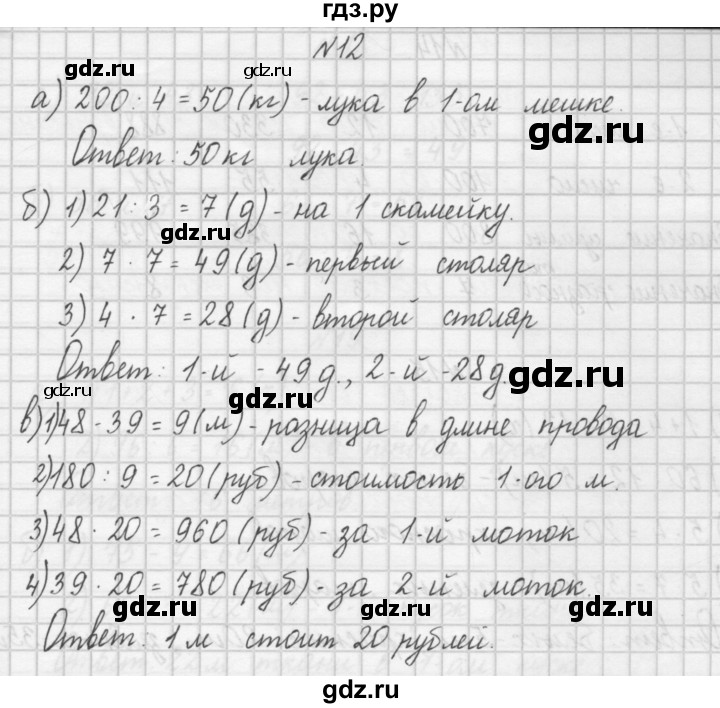 гдз.ру
№12
gdz.ru
а) 200 : 4 = 50 (кг) - лука в 1-ом мешке.
gdz.ru
Ответ: 50 кг лука.
б) 1) 21 : 3 = 7 (д) - на 1 скамейку.
gdz.ru
2) 7 · 7 = 49 (д) - первый столяр
3) 4 · 7 = 28 (д) - второй столяр
Ответ: 1-й - 49 д., 2-й - 28 д.
gdz.ru
gdz.ru
в) 1) 48 - 39 = 9 (м) - разница в длине провода
2) 180 : 9 = 20 (руб) - стоимость 1-ого м.
3) 48 · 20 = 960 (руб) - за 1-й моток
4) 39 · 20 = 780 (руб) - за 2-й моток.
gdz.ru
gdz.ru
Ответ. 1 м стоит 20 рублей.
gdz.ru